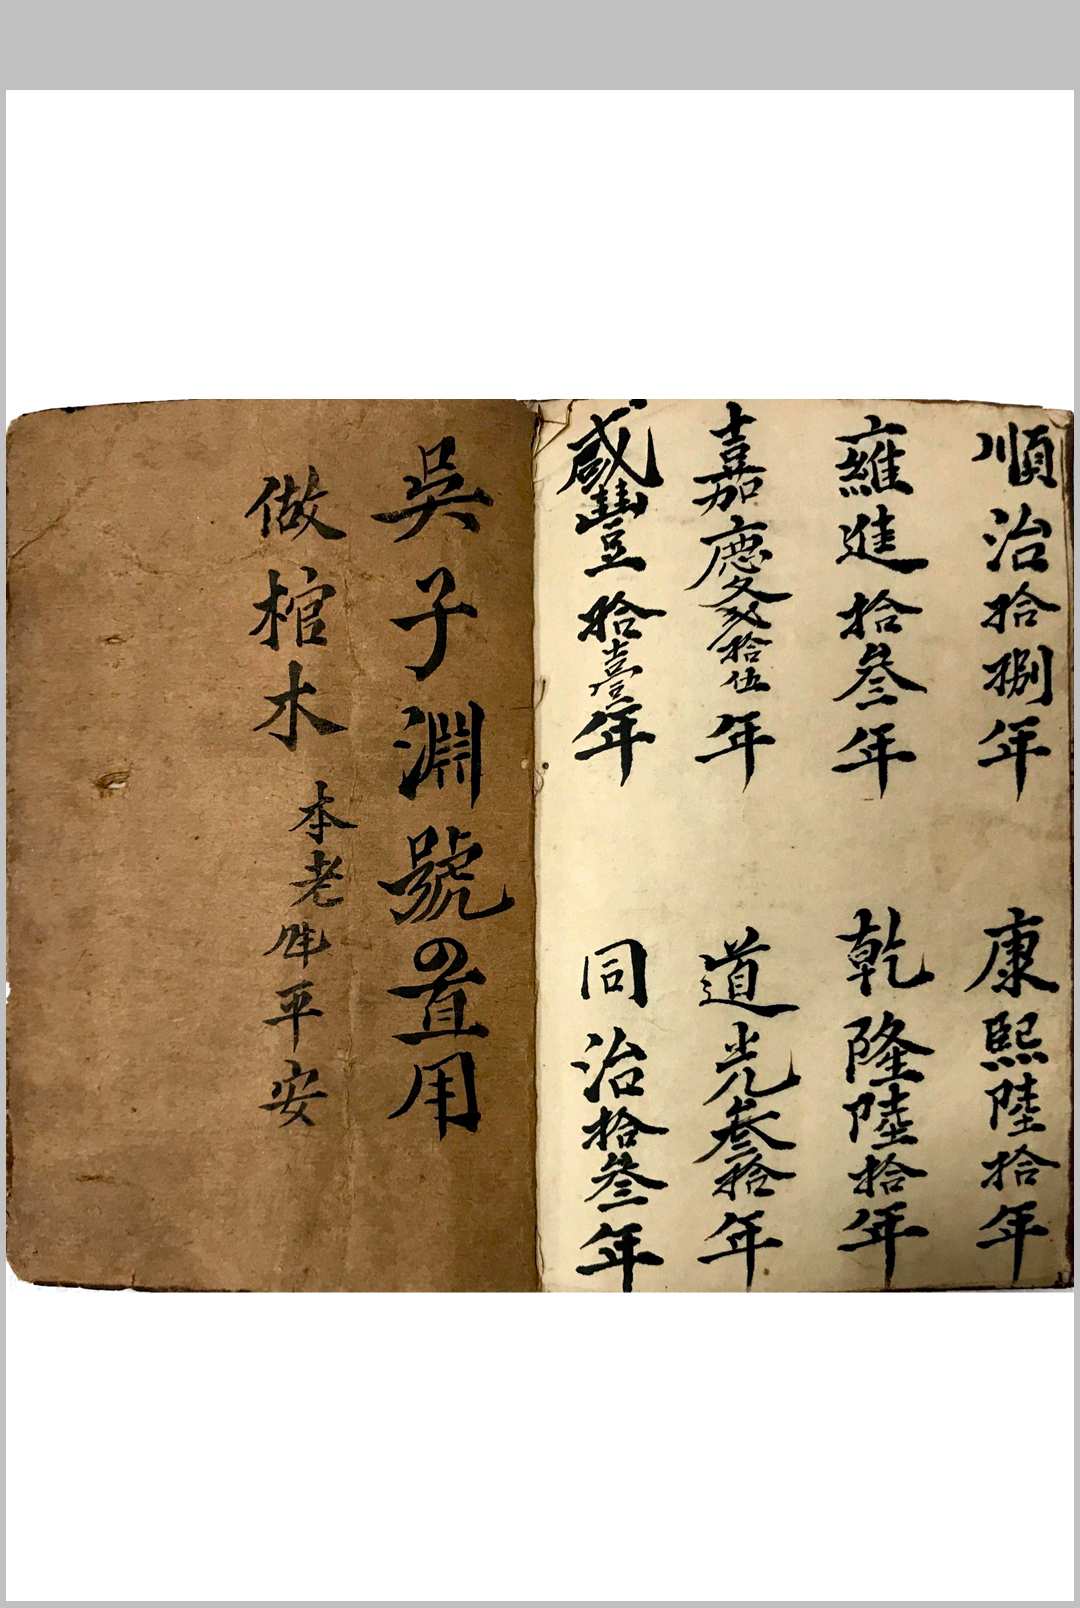 順治拾捌年
康熙陸拾年
雍進拾叁年
乾隆陸拾年
嘉慶貳拾伍年
道光叁拾年
咸豐拾壹年
同治拾叁年
吳子淵號の置用
做棺木
本老
平安